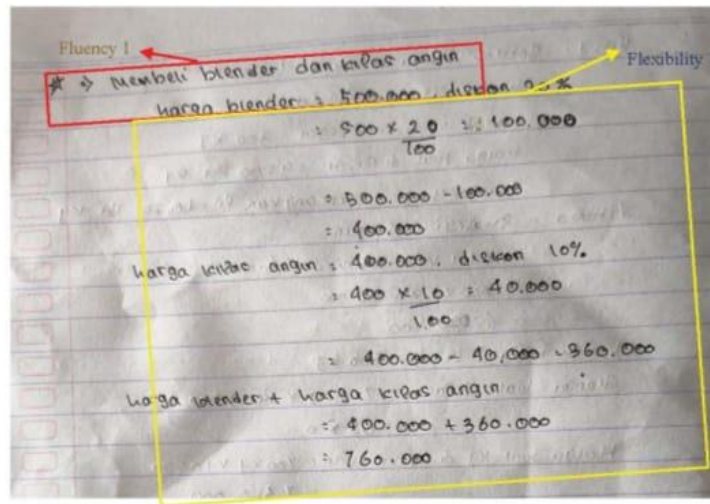 Fluency 1
Flexibility
* → Membeli blender dan kipas angin
harga blender = 500.000, diskon 20%
= 500 x 20 = 100.000
100
= 500.000 - 100.000
= 400.000
harga kipas angin = 400.000. diskon 10%
= 400 x 10 = 40.000
100
= 400.000 - 40.000 = 360.000
harga blender + harga kipas angin
= 400.000 + 360.000
= 760.000